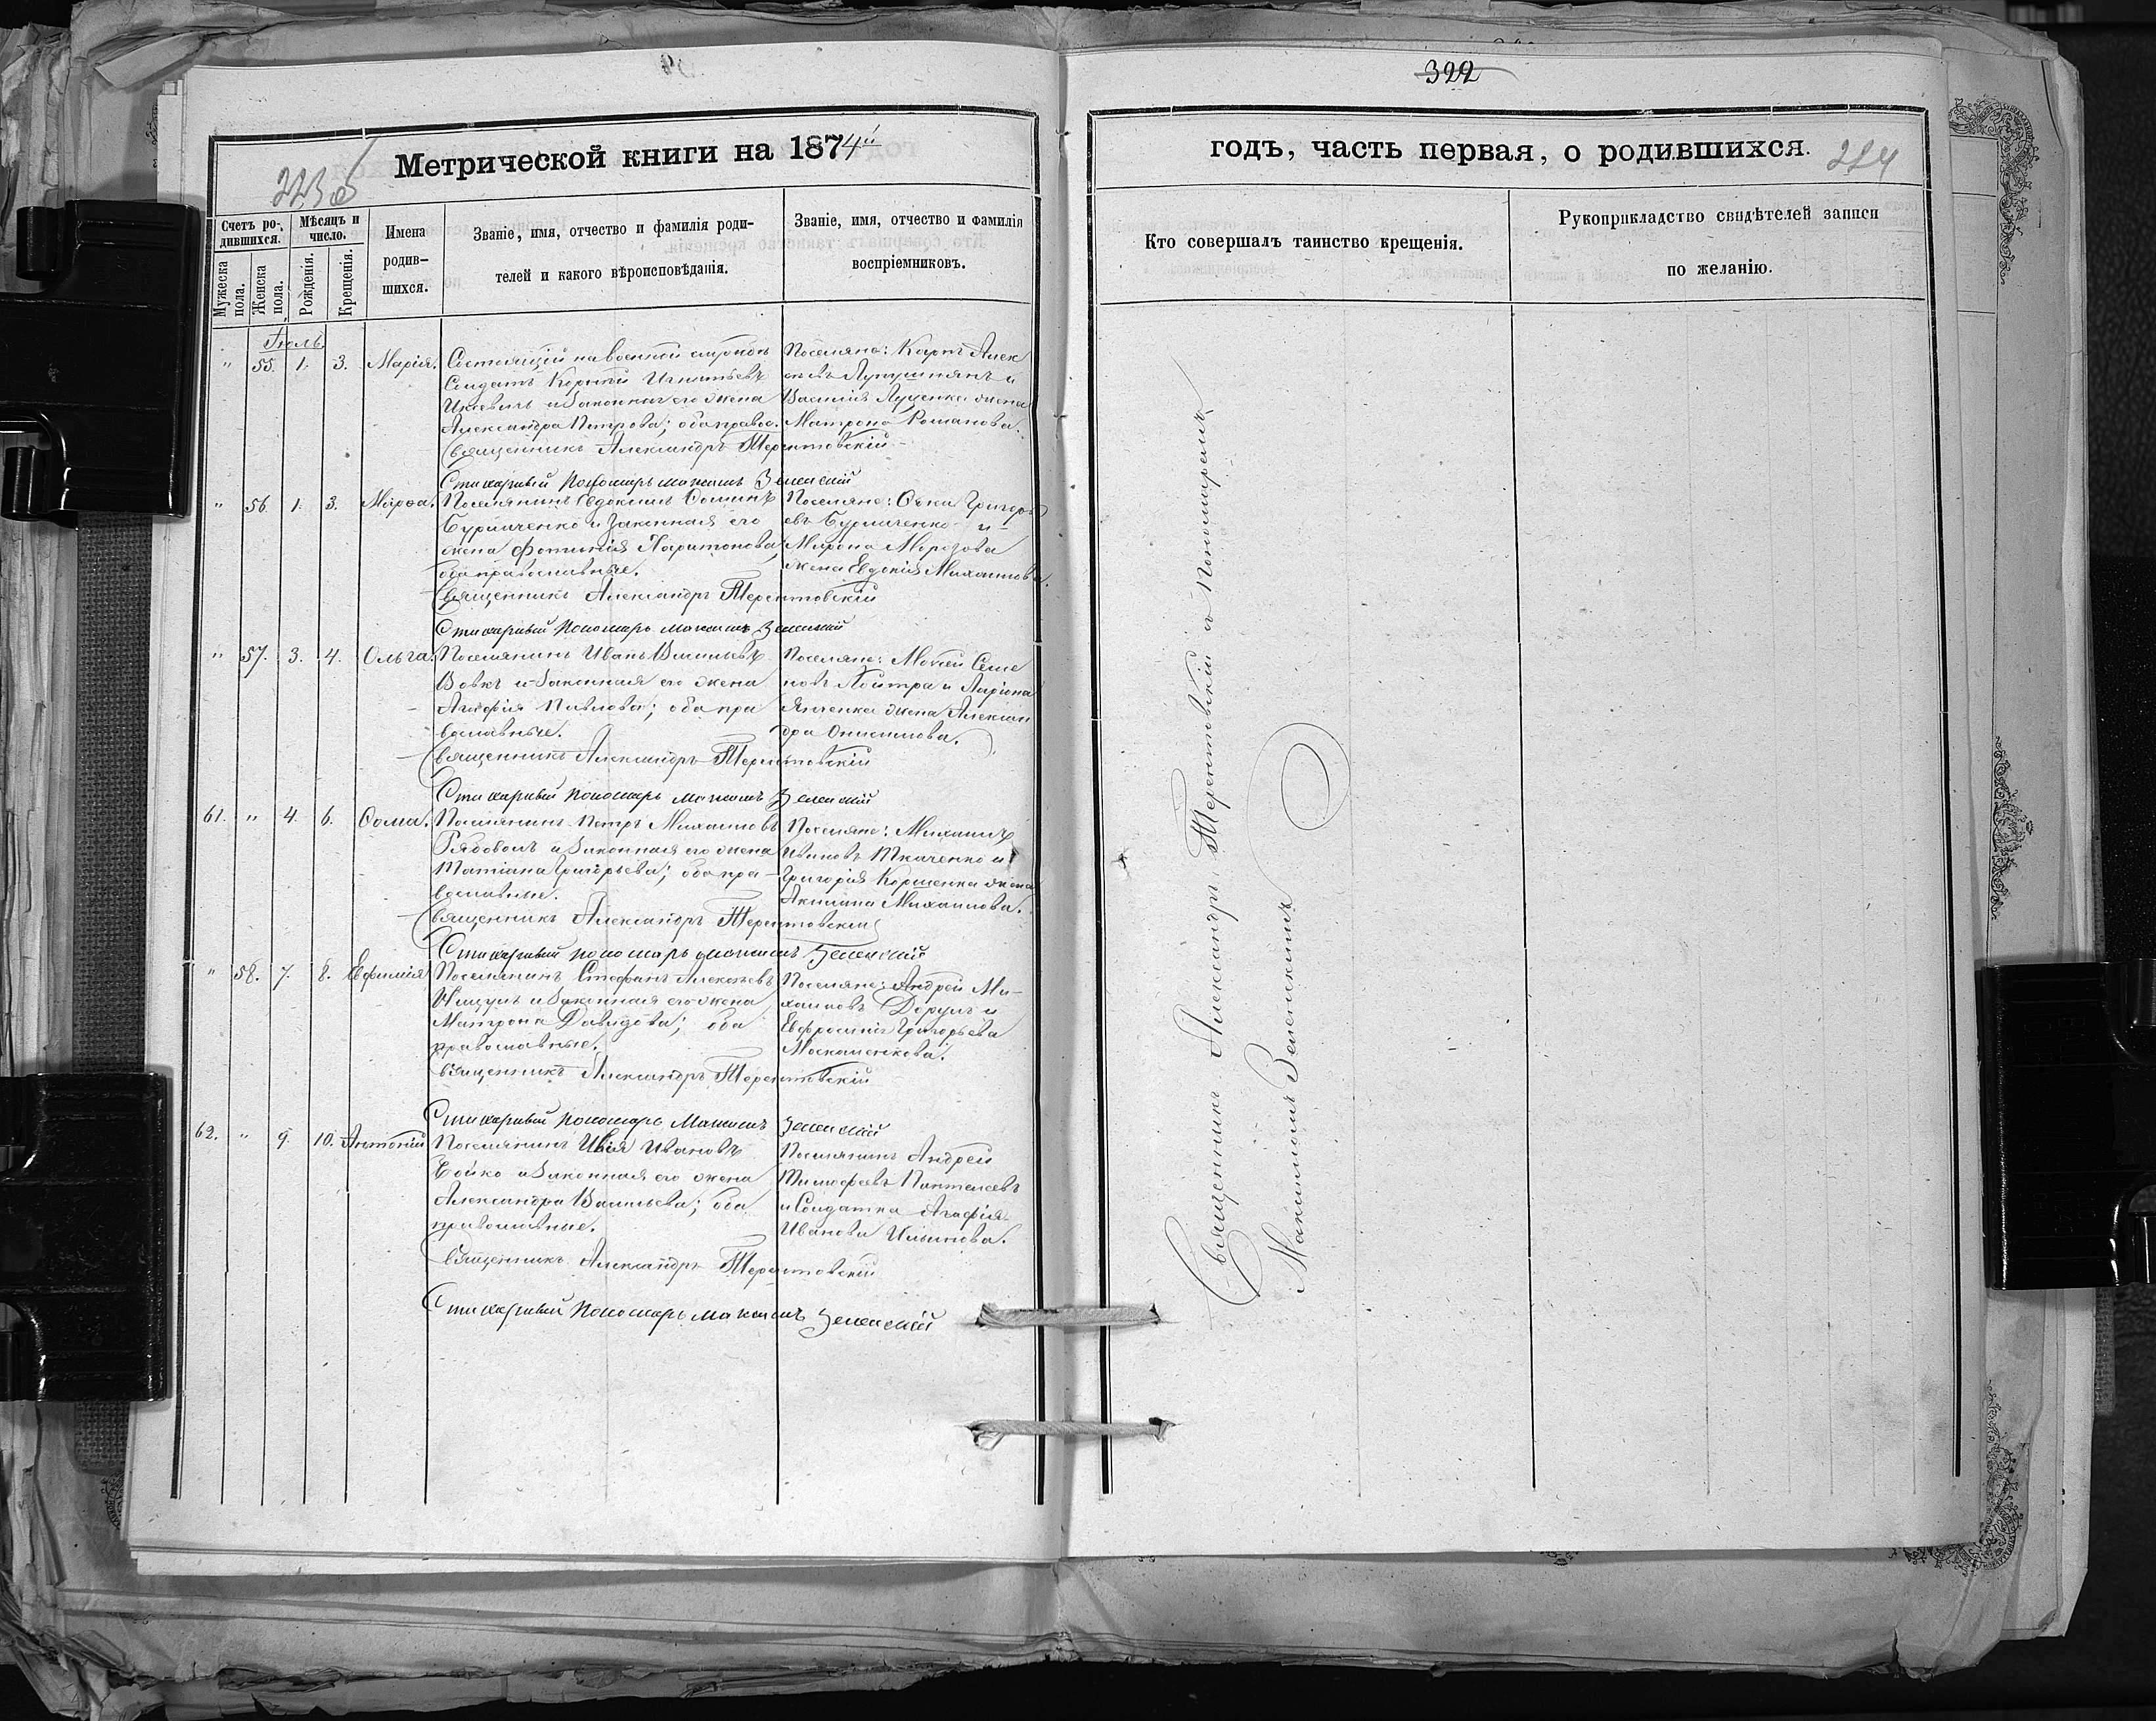 322
Метрической книги на 1874й
годъ, часть первая, о родившихся.
224
Счетъ ро-
дившихся.
Мужеска пола.
Женска пола.
Мѣсяцъ и
число.
Рожденія.
Крещенія.
Имена
родив-
шихся.
Званіе, имя, отчество и фамилія роди-
телей и какого вѣроисповѣданія.
Званіе, имя, отчество и фамилія
воспріемниковъ.
Кто совершалъ таинство крещенія.
Рукоприкладство свидѣтелей записи
по желанію.
Іюль.
" 55. 1. 3. Марія.
Состоящій на военной службѣ
Солдатъ Корнилій Игнатьевъ
и законная его жена
Александра Петрова; оба правос.
Поселяне: Карпъ Алек
Лупушнянъ и
Василія Луценка жена
Матрона Романова.
Священникъ Александръ Терентовскій
Стихарный Пономарь Максимъ Зеленскій
" 56. 1. 3. Марѳа.
Поселянинъ Евдокимъ Ѳоминъ
Бурлаченко и законная его
жена Фотинія Харитонова
оба православные.
Поселяне: Григорь
евъ Бурлаченко и
Мирона Морозова
жена Евдокія Михаилова.
Священникъ Александръ Терентовскій
Стихарный Пономарь Максимъ Зеленскій
" 57. 3. 4. Ольга.
Поселянинъ Иванъ Васильевъ
Вовкъ и законная его жена
Агафія Павлова; оба пра
вославные.
Поселяне: Мокій Семе
новъ Койтра и Ларіона
Янченка жена Алексан
дра Онисимова.
Священникъ Александръ Терентовскій
Стихарный Пономарь Максимъ Зеленскій
61. " 4. 6. Ѳома.
Поселянинъ Петръ Михаиловъ
Рябоволъ и законная его жена
Татіана Григорьева; оба пра-
вославные.
Поселяне: Михаилъ
Ивановъ Ткаченко и
Григорія Корженка жена
Акилина Михаилова.
Священникъ Александръ Терентовскій
Стихарный Пономарь Максимъ Зеленскій
" 58. 7. 8. Евфимія
Поселянинъ Стефанъ Алексѣевъ
и законная его жена
Матрона Давидова; оба
православные.
Поселяне: Андрей Ми-
хаиловъ Дорулъ и
Евфросинія Григорьева
Москаленкова.
Священникъ Александръ Терентовскій
Стихарный Пономарь Максимъ Зеленскій
62. " 9. 10. Антоній
Поселянинъ Илія Ивановъ
Бойко и законная его жена
Александра Васильева; оба
православные.
Поселянинъ Андрей
Тимофеевъ Пантелеевъ
и Солдатка Агафія
Иванова Ильинова.
Священникъ Александръ Терентовскій
Стихарный Пономарь Максимъ Зеленскій
Священникъ Александръ Терентовскій съ Пономаремъ
Максимомъ Зеленскимъ